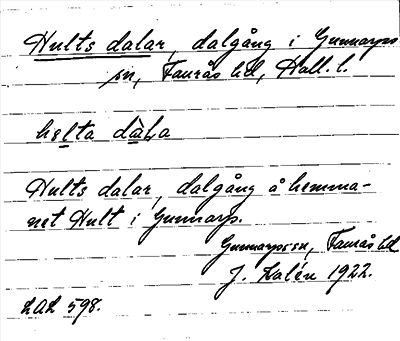 Hults dalar, dalgång i Gunnarps
sn, Faurås hd, Hall. l.
hølta dàLa
Hults dalar, dalgång å hemma-
net Hult i Gunnarp.
Gunnarps sn, Faurås hd
J. Kalén 1922.
LAL 598.